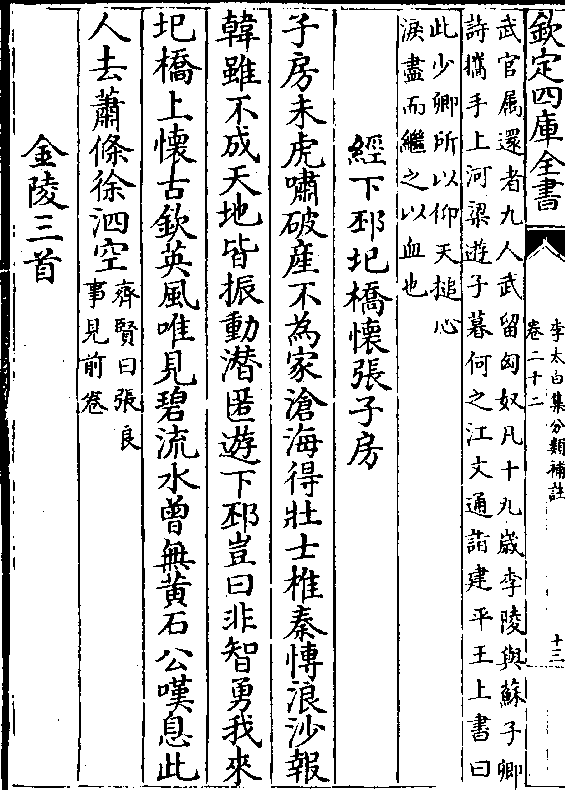 欽定四庫全書
李太白集分類補註
卷二十二
十三
武官属還者九人武留匈奴凡十九歲李陵與蘇子卿
詩攜手上河梁遊子暮何之江文通詣建平王上書曰
此少卿所以仰天搥心
淚盡而繼之以血也
經下邳圯橋懷張子房
子房未虎嘯破産不為家滄海得壯士椎秦愽浪沙報
韓雖不成天地皆振動潛匿遊下邳豈曰非智勇我來
圯橋上懷古欽英風唯見碧流水曾無黄石公嘆息此
人去蕭條徐泗空
齊賢曰張良
事見前卷
金陵三首